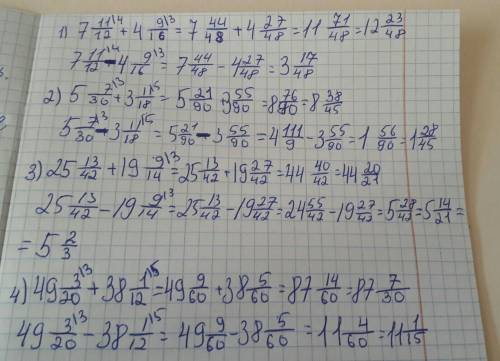 1) 7 11/12 \4 + 4 9/16 \3 = 7 44/48 + 4 27/48 = 11 71/48 = 12 23/48
7 11/12 \4 - 4 9/16 \3 = 7 44/48 - 4 27/48 = 3 17/48
2) 5 7/30 \3 + 3 11/18 \5 = 5 21/90 + 3 55/90 = 8 76/90 = 8 38/45
5 7/30 \3 - 3 11/18 \5 = 5 21/90 - 3 55/90 = 4 111/9 - 3 55/90 = 1 56/90 = 1 28/45
3) 25 13/42 + 19 9/14 \3 = 25 13/42 + 19 27/42 = 44 40/42 = 44 20/21
25 13/42 - 19 9/14 \3 = 25 13/42 - 19 27/42 = 24 55/42 - 19 27/42 = 5 28/42 = 5 14/21 =
= 5 2/3
4) 49 3/20 \3 + 38 1/12 \5 = 49 9/60 + 38 5/60 = 87 14/60 = 87 7/30
49 3/20 \3 - 38 1/12 \5 = 49 9/60 - 38 5/60 = 11 4/60 = 11 1/15